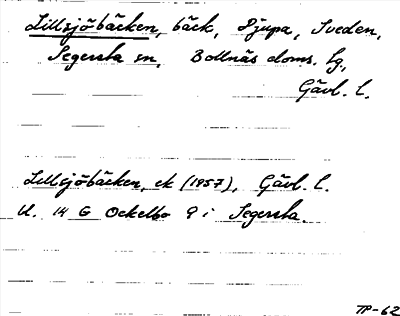 Lillsjöbäcken, bäck, Djupa, Sveden,
Segersta sn, Bollnäs doms. tg,
Gävl. l.
Lillsjöbäcken, ek (1957), Gävl. l.
U. 14 G Ockelbo 9 i Segersta.
TP-62